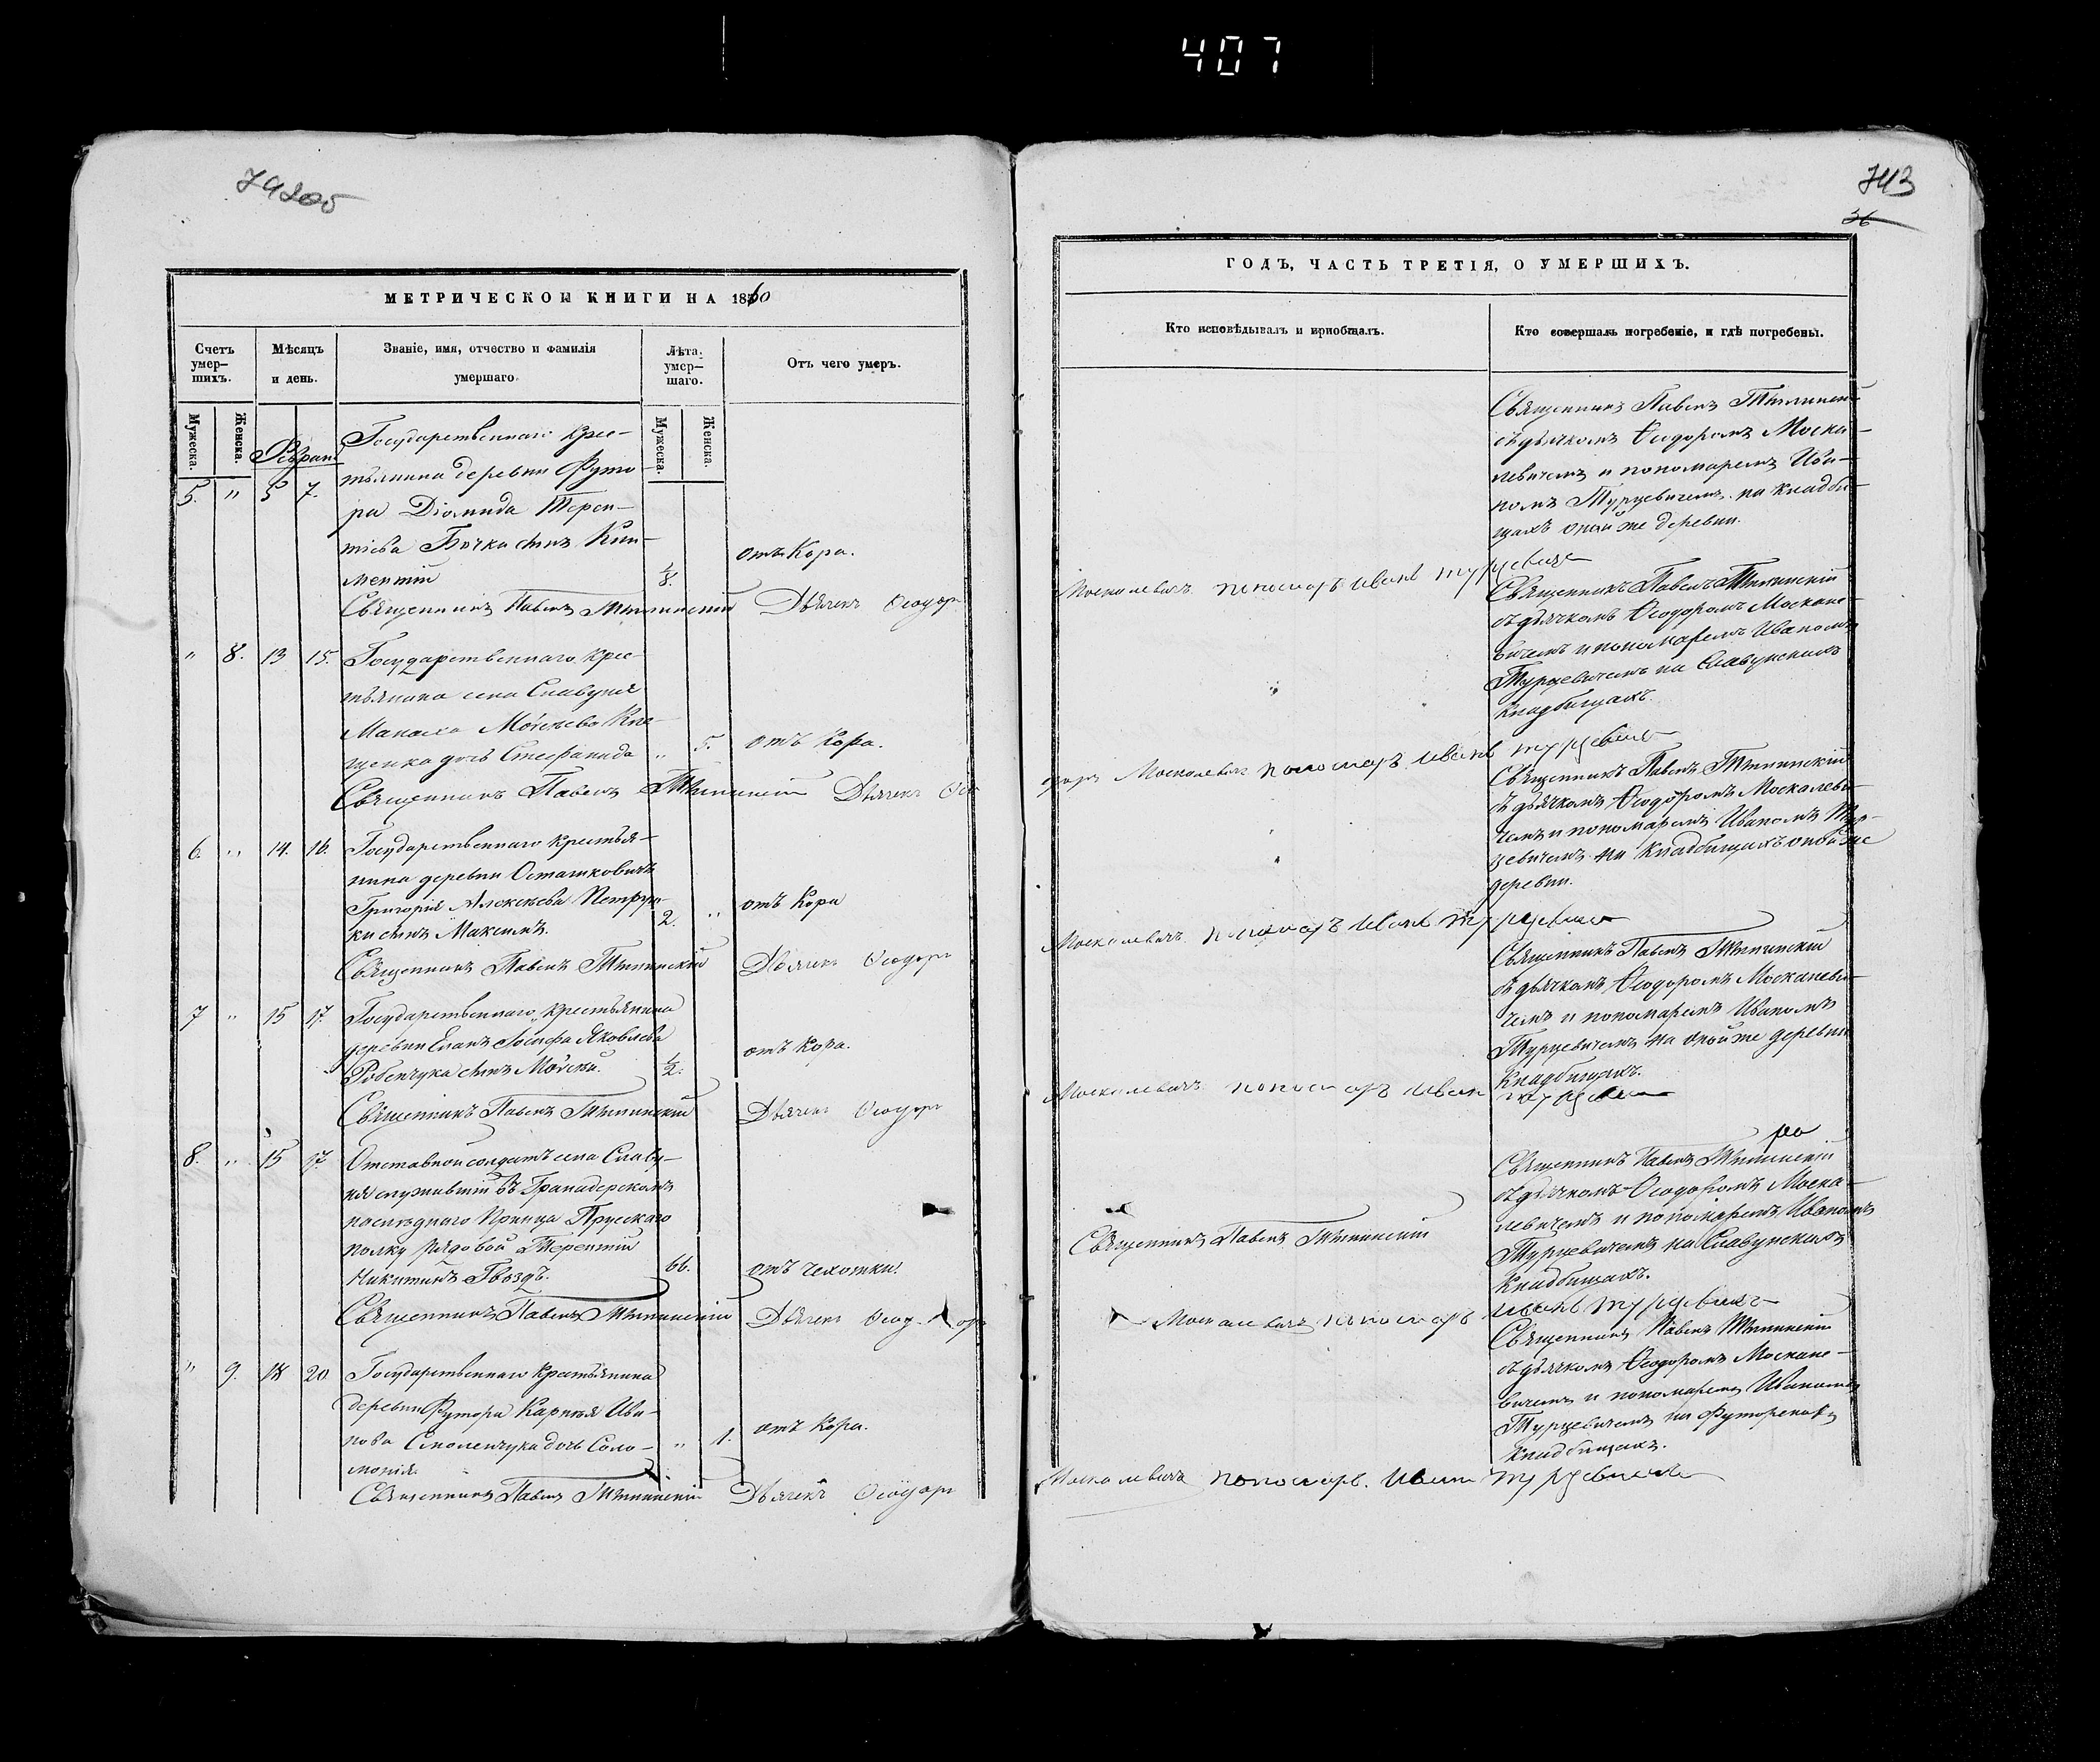 407
743
36
МЕТРИЧЕСКОЙ КНИГИ НА 1860
ГОДЪ, ЧАСТЬ ТРЕТІЯ, О УМЕРШИХЪ.
Счетъ умер-шихъ.
Мѣсяцъ и день.
Званіе, имя, отчество и фамилія умершаго.
Лѣта умер-шаго.
Отъ чего умеръ.
Кто исповѣдывалъ и пріобщалъ.
Кто совершалъ погребеніе, и гдѣ погребены.
Мужеска.
Женска.
Мужеска.
Женска.
5. " 5 7.
Государственнаго крес-
тьянина деревни Футо-
ра Діомида Терен-
тіева Бочка сынъ Кли-
ментій
1/8.
отъ Кора.
Священникъ Павелъ
съ дьячкомъ Ѳеодоромъ Моска-
левичемъ и пономаремъ Ива-
номъ Турцевичемъ на кладби-
щахъ оной же деревни.
Священникъ Павелъ Дьячекъ Ѳеодоръ
Москалевичъ пономаръ Иванъ Турцевичъ
" 8. 13 15.
Государственнаго крес-
тьянина села Славуня
Моисѣева
дочь Стефанида
" 5. отъ Кора.
Священникъ Павелъ
съ дьячкомъ Ѳеодоромъ Москале-
вичемъ и пономаремъ Иваномъ
Турцевичемъ на Славунскихъ
кладбищахъ.
Священникъ Павелъ Дьячекъ Ѳео
доръ Москалевичъ пономаръ Иванъ Турцевичъ
6. " 14. 16.
Государственнаго крестья-
нина деревни Осташковичъ
Григорія Алексѣева Петруч-
ки сынъ Максимъ.
2. " отъ Кора
Священникъ Павелъ
съ дьячкомъ Ѳеодоромъ Москалеви-
чемъ и пономаремъ Иваномъ Тур-
цевичемъ на кладбищахъ оной же
деревни.
Священникъ Павелъ Дьячекъ Ѳеодоръ
Москалевичъ пономаръ Иванъ Турцевичъ
7 " 15 17.
Государственнаго крестьянина
деревни Іосифа Яковлева
сынъ Моисей.
1/2.
отъ Кора.
Священникъ Павелъ
съ дьячкомъ Ѳеодоромъ Москалеви-
чемъ и пономаремъ Иваномъ
Турцевичемъ на оной же деревни
кладбищахъ.
Священникъ Павелъ Дьячекъ Ѳеодоръ
Москалевичъ пономаръ Иванъ Турцевичъ
8. " 15 17.
Отставной солдатъ села Славу-
ня служившій въ Гранадерскомъ
наслѣднаго Принца Прусскаго
полку рядовой Терентій
Никитинъ Гвоздь.
66. отъ чехотки.
Священникъ Павелъ
Священникъ Павелъ
съ дьячкомъ Ѳеодоромъ Моска-
левичемъ и пономаремъ Иваномъ
Турцевичемъ на Славунскихъ
кладбищахъ.
Священникъ Павелъ Дьячекъ Ѳеодоръ
Москалевичъ пономаръ Иванъ Турцевичъ
" 9. 18 20
Государственнаго крестьянина
деревни Футора Карнея Ива-
нова Смоленчука дочь Соло-
монія.
" 1. отъ Кора.
Священникъ Павелъ
съ дьячкомъ Ѳеодоромъ Москале-
вичемъ и пономаремъ Иваномъ
Турцевичемъ на Футорскихъ
кладбищахъ.
Священникъ Павелъ Дьячекъ Ѳеодоръ
Москалевичъ пономаръ Иванъ Турцевичъ